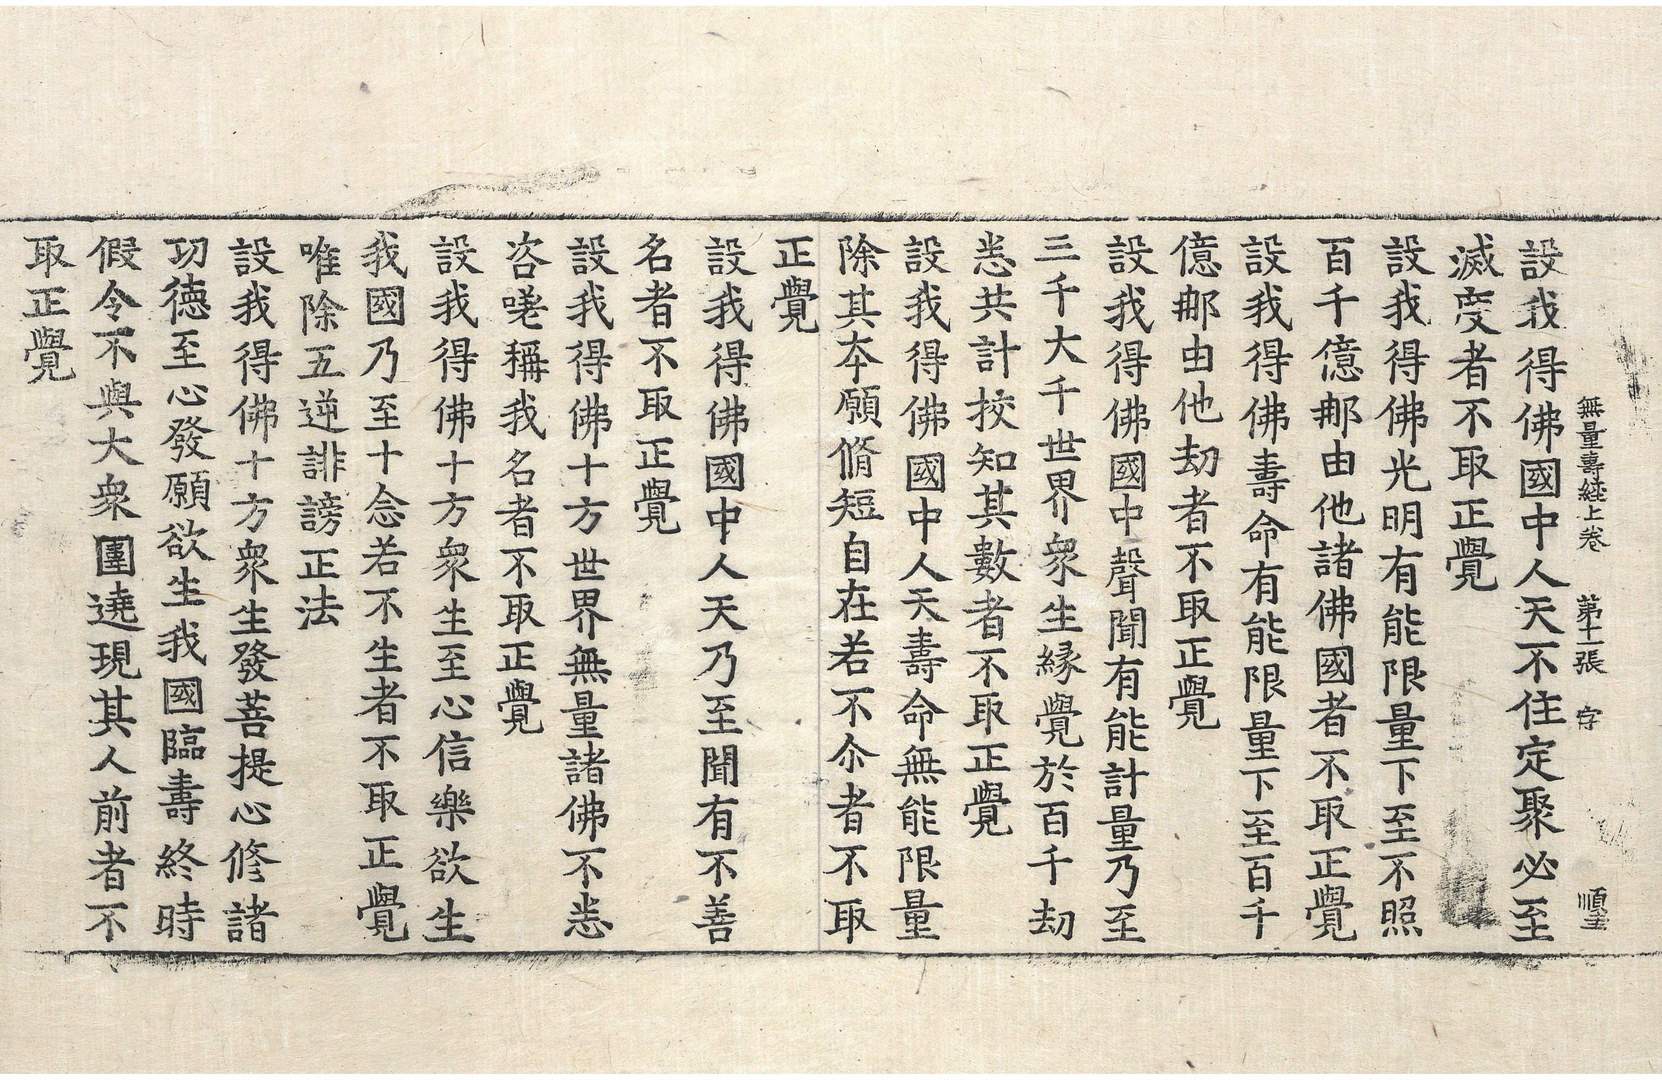 無量壽経上卷 第十一張 字 順圭
設我得佛國中人天不住定聚必至
滅度者不取正覺
設我得佛光明有能限量下至不照
百千億那由他諸佛國者不取正覺
設我得佛壽命有能限量下至百千
億那由他劫者不取正覺
設我得佛國中聲聞有能計量乃至
三千大千世界衆生縁覺於百千劫
悉共計挍知其數者不取正覺
設我得佛國中人天壽命無能限量
除其夲願脩短自在若不尒者不取
正覺
設我得佛國中人天乃至聞有不善
名者不取正覺
設我得佛十方世界無量諸佛不悉
咨嗟稱我名者不取正覺
設我得佛十方衆生至心信樂欲生
我國乃至十念若不生者不取正覺
唯除五逆誹謗正法
設我得佛十方衆生發菩提心修諸
功德至心發願欲生我國臨壽終時
假令不與大衆圍遶現其人前者不
取正覺